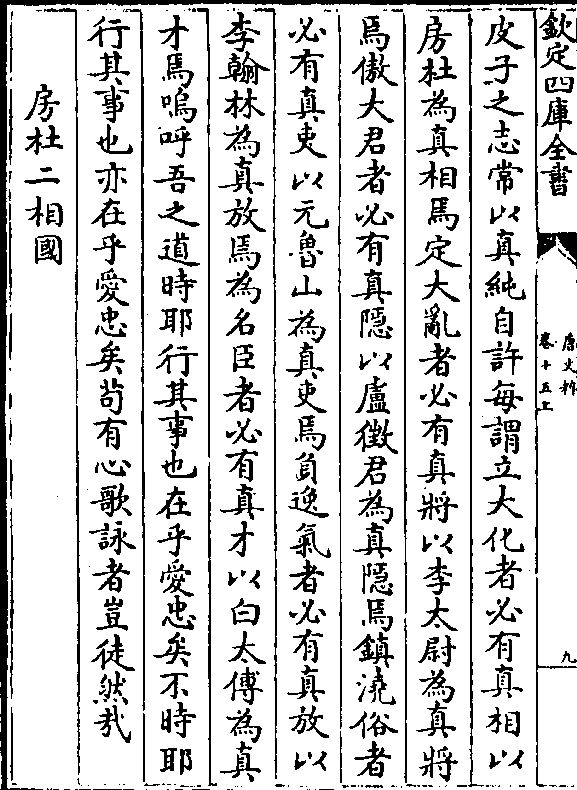 欽定四庫全書
唐文粹
卷十五上
九
皮子之志常以真純自許每謂立大化者必有真相以
房杜為真相焉定大亂者必有真將以李太尉為真將
焉傲大君者必有真隱以盧徵君為真隱焉鎮澆俗者
必有真吏以元魯山為真吏焉負逸氣者必有真放以
李翰林為真放焉為名臣者必有真才以白太傅為真
才焉嗚呼吾之道時耶行其事也在乎愛忠矣不時耶
行其事也亦在乎愛忠矣苟有心歌詠者豈徒然㢤
房杜二相國